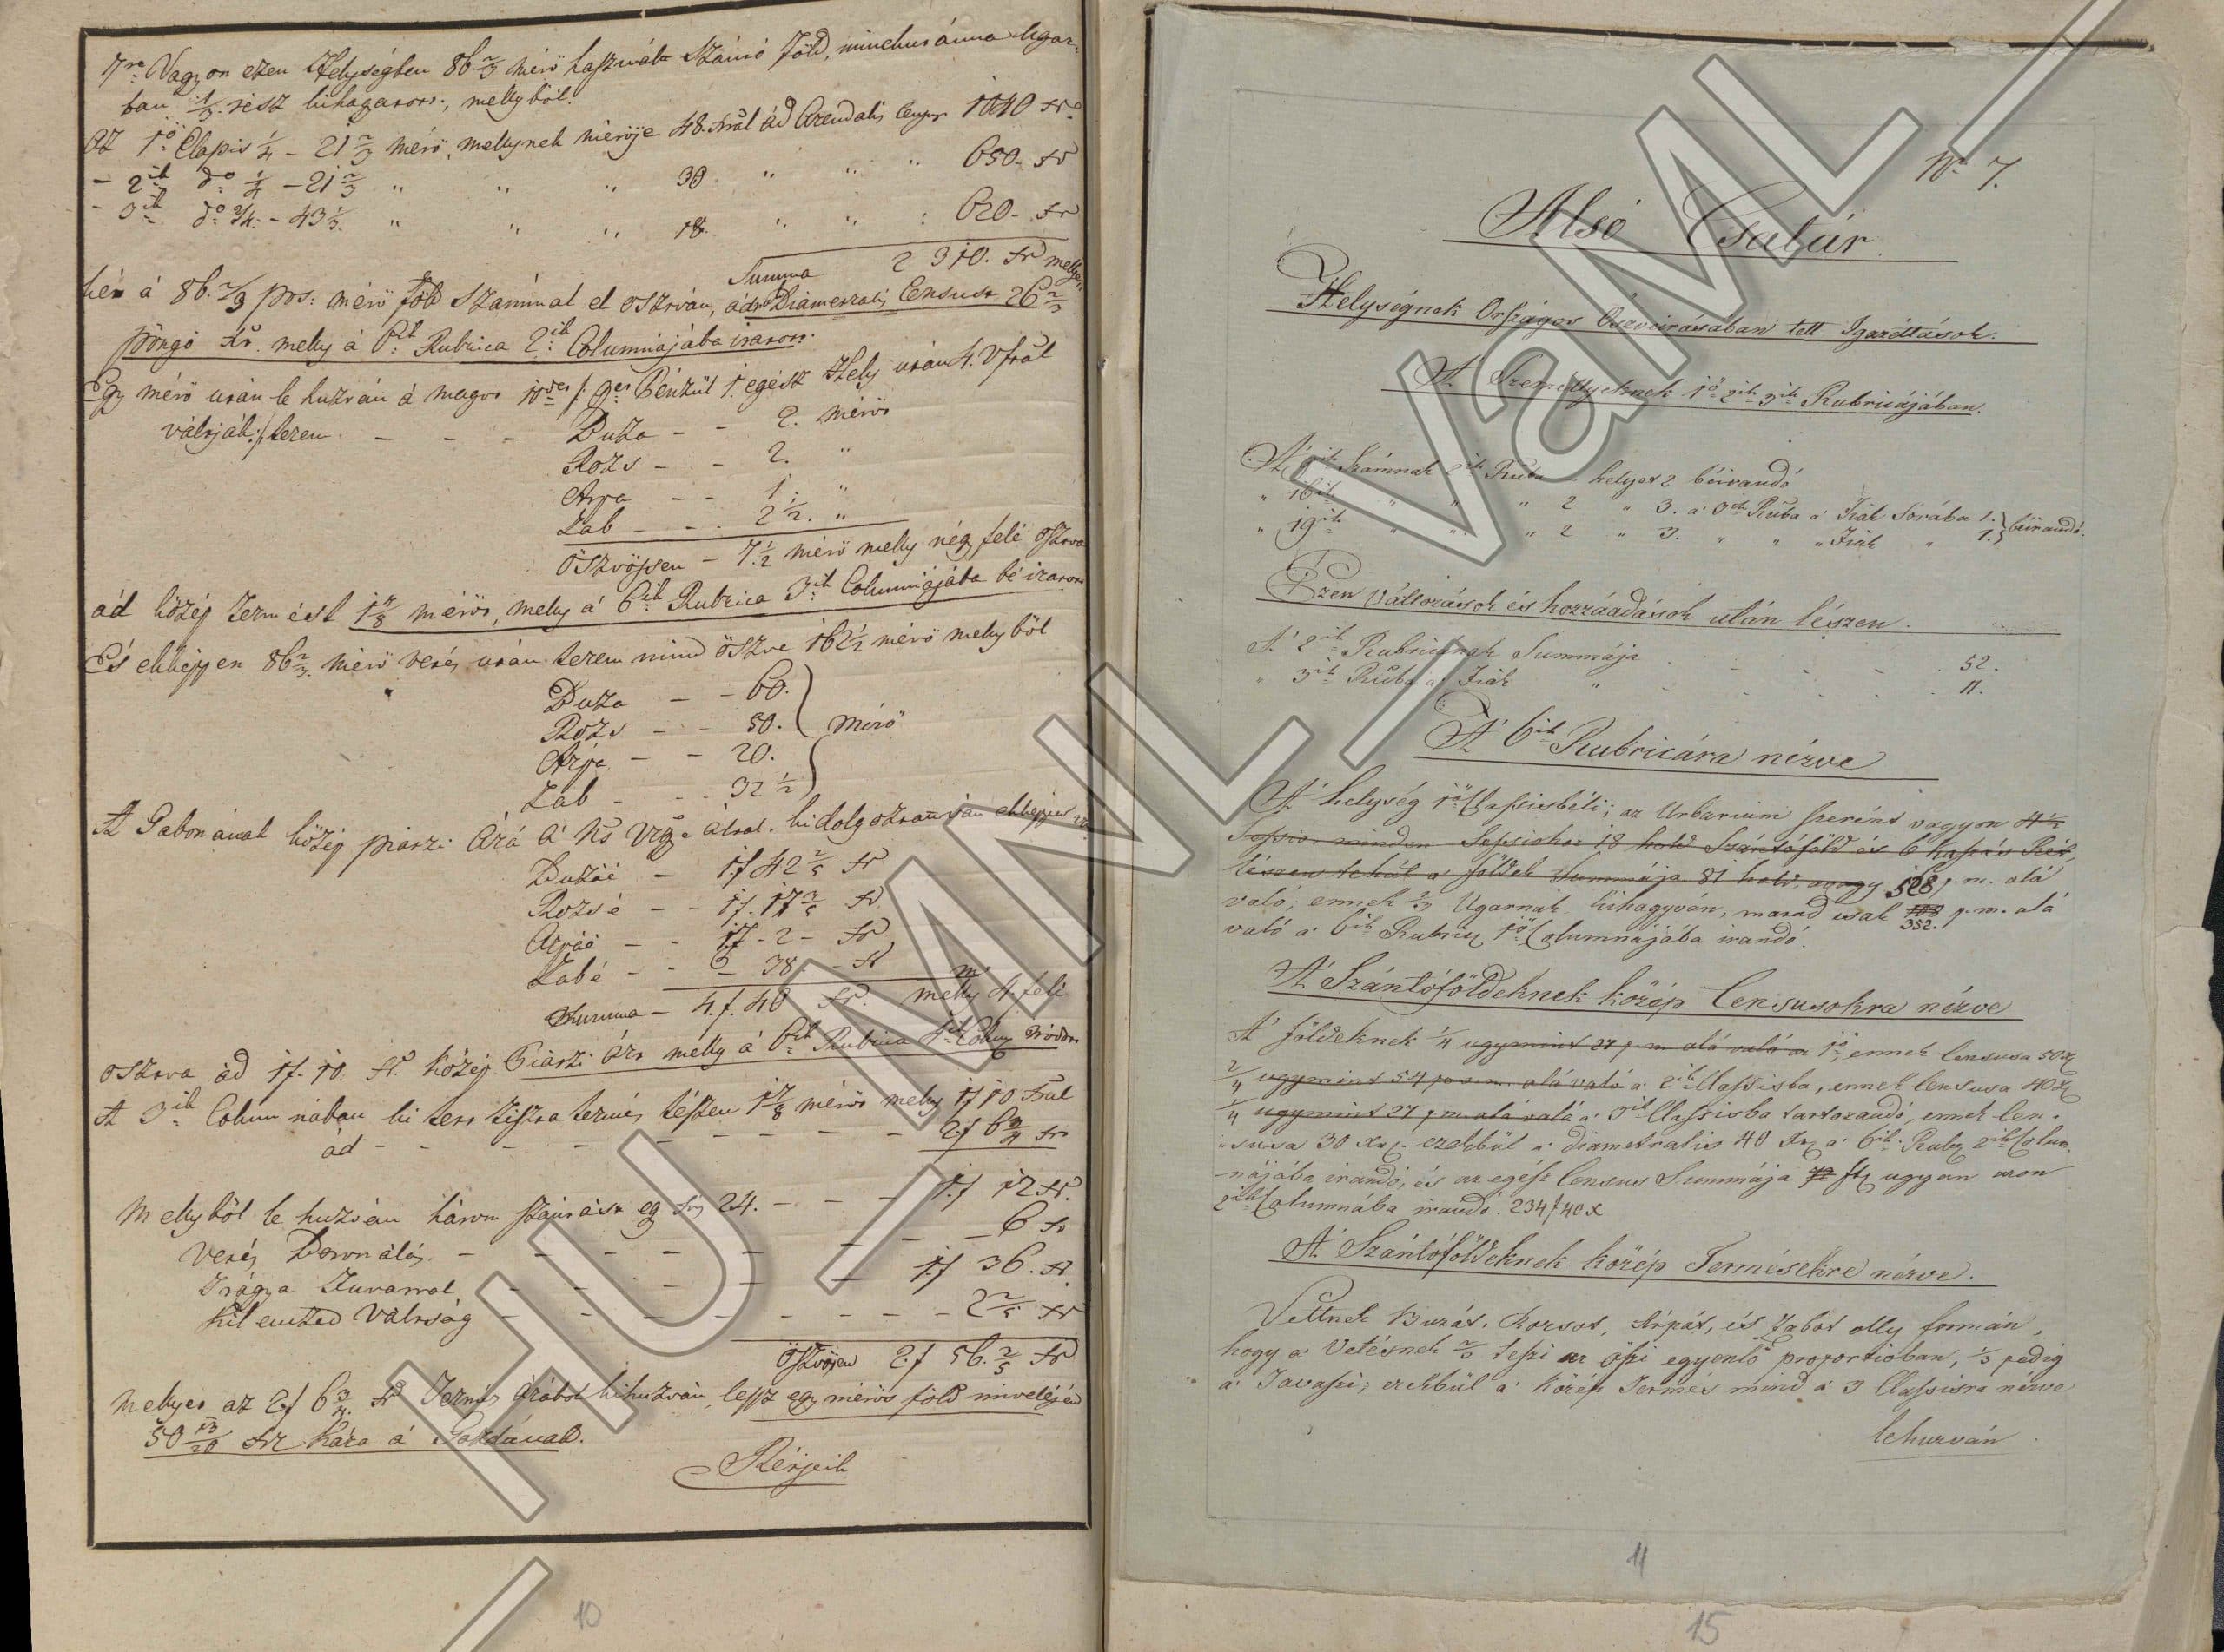 7re Vagyon ezen Helységben 86 2/3 mérő használt Szántó Föld, minekutánna Ugar-
ban 1/3 rész kihagyatott, mellyből.
Az 1ő Classis 1/4 – 21 2/3 mérő, mellynek mérője 48. xrál ád Arendalis Census 1040 xr
– 2ik do 1/4 – 21 2/3 " " " 30 " " " 650 – xr
– 3ik do 2/4 – 43 1/3 " " " 18. " " : 620 – xr
Summa 2310. xr melly
kér á 86. 2/3 pos: mérő föld Számmal el osztván, ád Diametralis Census 26 2/3
pöngő Xr. melly á 6ik Rubrica 2ik Columnájába iratott.
Egy mérő után le huzván á magot
válsját / terem. – – – Buza – – 2. mérős
Rozs – – 2. "
Árpa – – 1. "
Zab – – . 2 1/2. "
Öszvössen – 7. 1/2 mérő melly négy felé osztva
ád közép termést 1 7/8 mérős, melly á 6ik Rubrica 3ik Columnájába bé iratott
És ekképpen 86 2/3 mérő vetés után terem mind öszve 162 1/2 mérő mellyből
Buza – – 60.
Rozs – – 50. mérő
Árpa – – 20.
Zab – – 32 1/2
A Gabonának közép piarzi Árá
Buzáé – 1f 42 2/5 xr
Rozsé – – 1f. 17 3/5 xr.
Árpáé – – 1f – 2 – xr
Zabé – – – 38 – xr
Summa – 4. f. 40 xr. melly 4. felé
osztva ád 1f. 10. xr. közép Piarzi Árt melly á 6ik Rubrica
A 3ik Columnában ki tett tiszta termés tészen 1 7/8 mérőt melly 1f 10 xrál
ád – – – – – – – – – 2f 6 3/4 xr
Mellyből le huzván három szántást egy 24. – – – 1f 12 xr.
Vetés Boronálás – – – – – – – 6 xr
Trágya Fuvarral – – – – – – 1f 36. xr.
Kilentzed Váltság – – – – – – – – 2 2/5 xr
Öszvösen 2f 56. 2/5 xr
Mellyet az 2f 6 3/4. xr Termés Árából kihuzván, lessz egy mérős föld mivelésén
á Gazdának.
Rétjeik
10
No 7.
Alsó Csatár
Helységnek Országos Öszveirásában tett Igazittások.
A' Személlyeknek 1ő 2ik 3ik Rubricájában.
Számnak 2ik Ruba – helyet 2 béirandó
" 16ik " " " 2 " 3. a' 3ik Ruba a' Fiak Sorába 1.
" 19ik " " " 2 " 3. " " " Fiak " 1. béirandó.
Ezen változások és hozzáadások után lészen.
A' 2ik Rubricának Summája . – – – – . 52.
" 3ik Ruba a' Fiak " . – – – . 11.
A' 6ik Rubricára nézve
A' helység 1ő Classisbéli; az Urbarium szerént vagyon 4 1/2
Sessio minden Sessiohoz 18 hold Szántóföld és 6 kaszás Rét,
lészen tehát a' földek Summája 81 hold, avagy 528 p. m. alá
való; ennek 1/3 Ugarnak kihagyván, marad csak 352. p. m. alá
való a' 6ik Rubriq 1ő Columnájába irandó.
A' Szántóföldeknek közép Censusokra nézve
A' földeknek 1/4 ugymint 27 p. m. alá való a' 1ő, ennek Censusa 50 x
2/4 ugymint 54 pos. m. alá való a' 2ik Classisba, ennek Censusa 40 x
1/4 ugymint 27 p. m. alá való a' 3ik Classisba tartozandó, ennek Cen-
susa 30 xr. ezekbül a' diametralis 40 xr a' 6ik Rubr. 2ik Colum-
nájába irandó, és az egész Census Summája 72 ft ugyan azon
2ik Columnába irandó. 234 f 40 x
A' Szántóföldeknek közép Termésekre nézve.
Vettnek Buzát, Rozsot, Árpát, és Zabot olly formán,
hogy a' Vetésnek 2/3 teszi az öszi egyenlő proportioban, 1/3 pedig
a' Tavaszi; ezekbül a' közép Termés mind a' 3 Classisra nézve
lehuzván
11
15
HU – MNL – VaML –